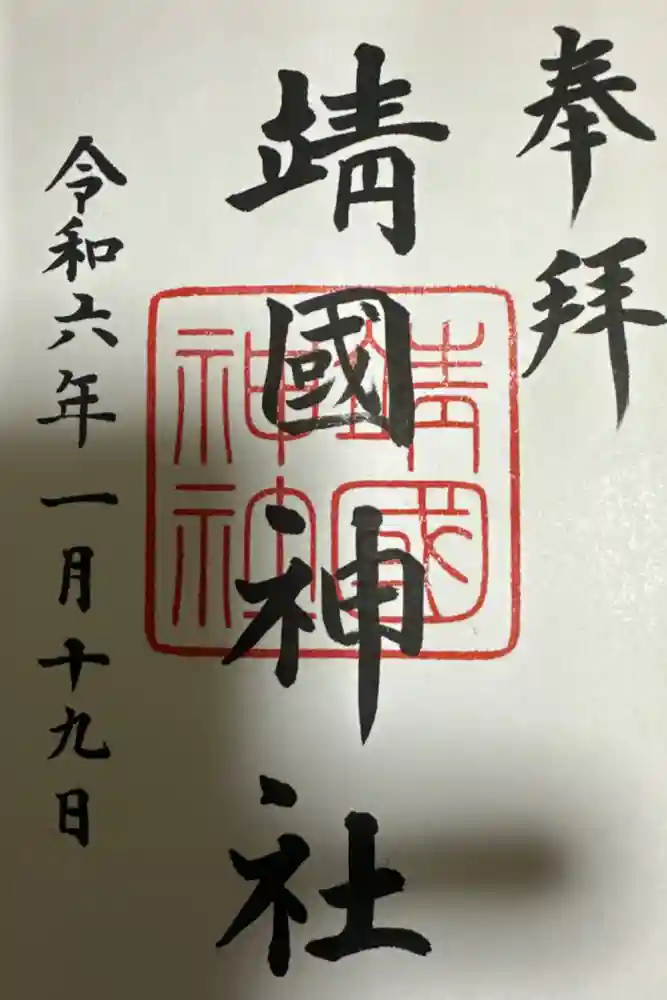 奉拝
靖國神社
靖國神社
令和六年一月十九日